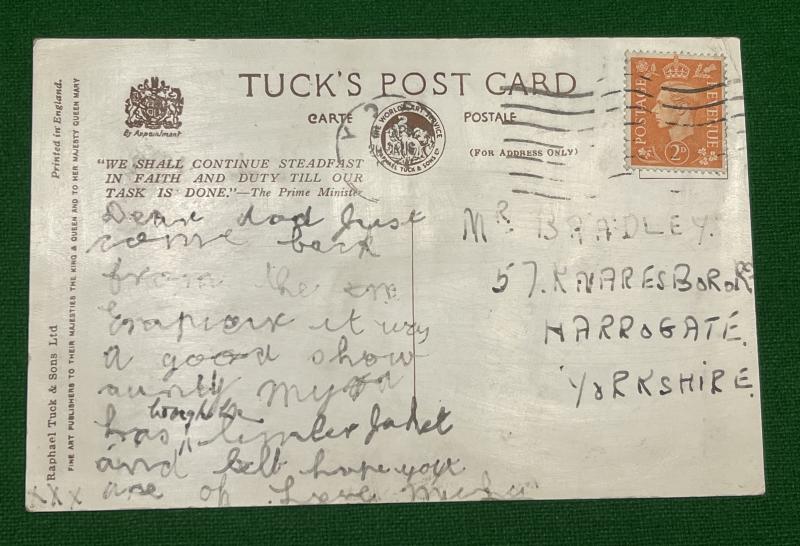 TUCK'S POST CARD
CARTE POSTALE
(FOR ADDRESS ONLY)
By Appointment
THE WORLD ART SERVICE
RAPHAEL TUCK & SONS LTD
POSTAGE REVENUE
2D
"WE SHALL CONTINUE STEADFAST
IN FAITH AND DUTY TILL OUR
TASK IS DONE."—The Prime Minister
Printed in England.
Raphael Tuck & Sons, Ltd
FINE ART PUBLISHERS TO THEIR MAJESTIES THE KING & QUEEN AND TO HER MAJESTY QUEEN MARY
Dear dad Just
come back
from the
it was
a good show
aunty
has bought me
a Jaket
and belt hope you
are Love
xxx
MR BRADLEY.
57. KNARESBORO RD
HARROGATE.
YORKSHIRE.